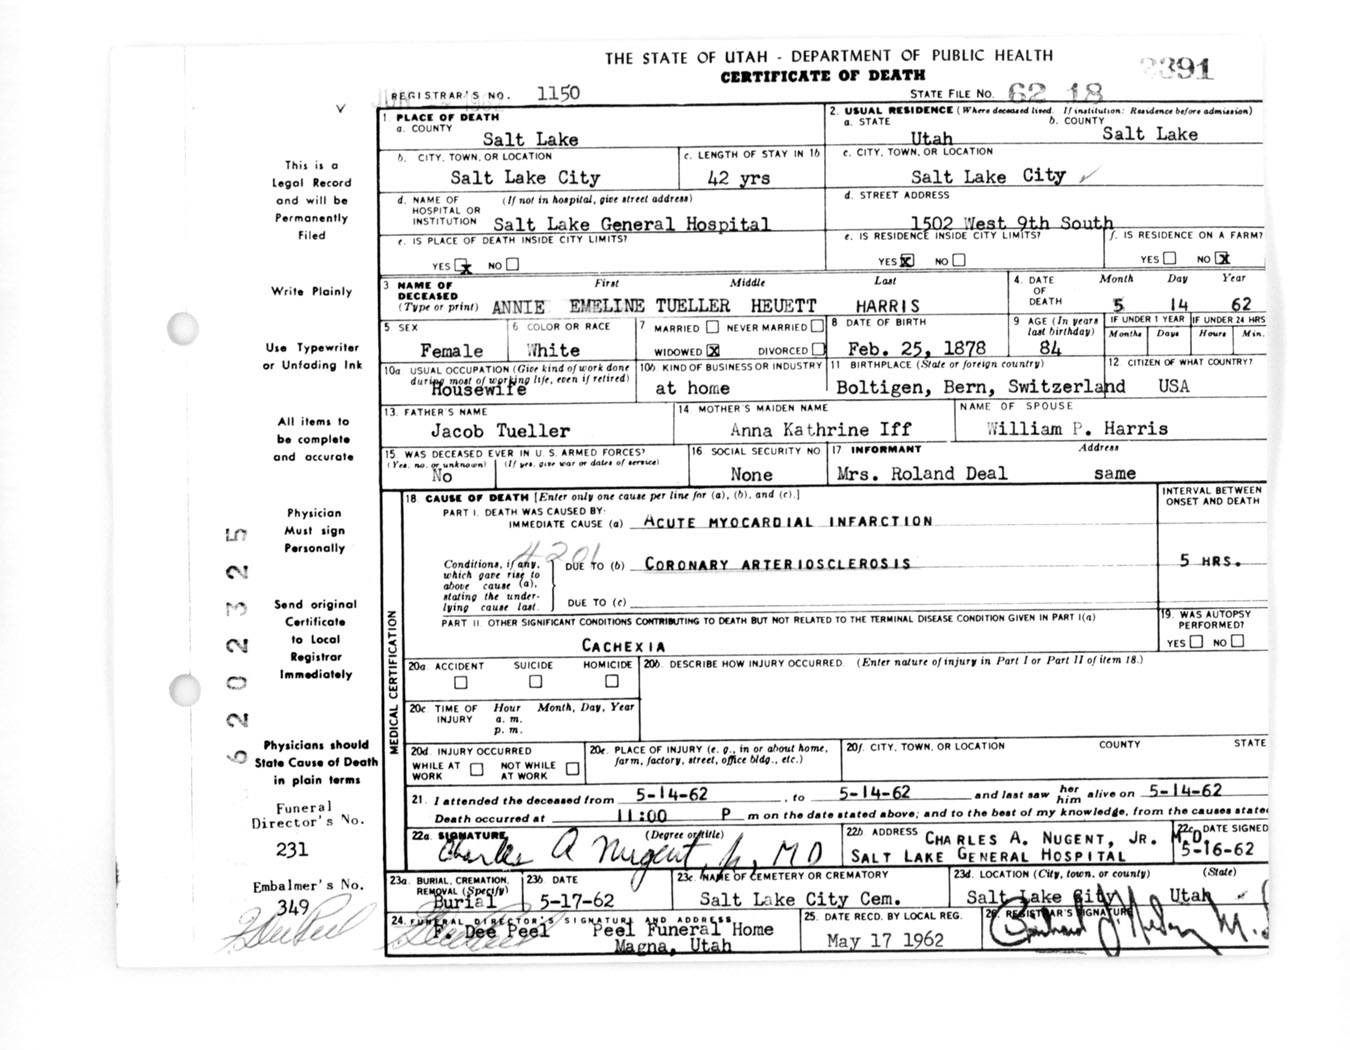 THE STATE OF UTAH - DEPARTMENT OF PUBLIC HEALTH
CERTIFICATE OF DEATH
REGISTRAR'S NO. 1150
STATE FILE NO. 62 18
1. PLACE OF DEATH
a. COUNTY
Salt Lake
2. USUAL RESIDENCE (Where deceased lived. If institution: Residence before admission)
a. STATE
Utah
b. COUNTY
Salt Lake
b. CITY, TOWN, OR LOCATION
Salt Lake City
c. LENGTH OF STAY IN 1b
42 yrs
c. CITY, TOWN, OR LOCATION
Salt Lake City
d. NAME OF HOSPITAL OR INSTITUTION (If not in hospital, give street address)
Salt Lake General Hospital
d. STREET ADDRESS
1502 West 9th South
e. IS PLACE OF DEATH INSIDE CITY LIMITS?
YES x NO
e. IS RESIDENCE INSIDE CITY LIMITS?
YES x NO
f. IS RESIDENCE ON A FARM?
YES NO x
3 NAME OF DECEASED (Type or print)
First Middle Last
ANNIE EMELINE TUELLER HEUETT HARRIS
4. DATE OF DEATH
Month Day Year
5 14 62
5 SEX
Female
6 COLOR OR RACE
White
7 MARRIED NEVER MARRIED
WIDOWED X DIVORCED
8 DATE OF BIRTH
Feb. 25, 1878
9 AGE (In years last birthday)
84
IF UNDER 1 YEAR
Months Days
IF UNDER 24 HRS
Hours Min.
10a USUAL OCCUPATION (Give kind of work done during most of working life, even if retired)
Housewife
10b KIND OF BUSINESS OR INDUSTRY
at home
11 BIRTHPLACE (State or foreign country)
Boltigen, Bern, Switzerland
12 CITIZEN OF WHAT COUNTRY?
USA
13. FATHER'S NAME
Jacob Tueller
14 MOTHER'S MAIDEN NAME
Anna Kathrine Iff
NAME OF SPOUSE
William P. Harris
15 WAS DECEASED EVER IN U.S. ARMED FORCES?
(Yes, no, or unknown) (If yes, give war or dates of service)
No
16 SOCIAL SECURITY NO.
None
17 INFORMANT Address
Mrs. Roland Deal same
MEDICAL CERTIFICATION
18 CAUSE OF DEATH [Enter only one cause per line for (a), (b), and (c).]
INTERVAL BETWEEN ONSET AND DEATH
PART I. DEATH WAS CAUSED BY:
IMMEDIATE CAUSE (a) ACUTE MYOCARDIAL INFARCTION
4201
Conditions, if any, which gave rise to above cause (a), stating the underlying cause last.
DUE TO (b) CORONARY ARTERIOSCLEROSIS
5 HRS.
DUE TO (c)
PART II. OTHER SIGNIFICANT CONDITIONS CONTRIBUTING TO DEATH BUT NOT RELATED TO THE TERMINAL DISEASE CONDITION GIVEN IN PART I(a)
CACHEXIA
19. WAS AUTOPSY PERFORMED?
YES NO
20a. ACCIDENT SUICIDE HOMICIDE
20b. DESCRIBE HOW INJURY OCCURRED. (Enter nature of injury in Part I or Part II of item 18.)
20c TIME OF INJURY Hour Month, Day, Year
a. m.
p. m.
20d. INJURY OCCURRED
WHILE AT WORK NOT WHILE AT WORK
20e. PLACE OF INJURY (e. g., in or about home, farm, factory, street, office bldg., etc.)
20f. CITY, TOWN, OR LOCATION COUNTY STATE
21. I attended the deceased from 5-14-62, to 5-14-62 and last saw her him alive on 5-14-62
Death occurred at 11:00 P m on the date stated above; and to the best of my knowledge, from the causes state
22a. SIGNATURE (Degree or title)
Charles A Nugent, Jr, MD
22b ADDRESS CHARLES A. NUGENT, JR. M.D
SALT LAKE GENERAL HOSPITAL
22c DATE SIGNED
5-16-62
23a. BURIAL, CREMATION, REMOVAL (Specify)
Burial
23b DATE
5-17-62
23c. NAME OF CEMETERY OR CREMATORY
Salt Lake City Cem.
23d. LOCATION (City, town, or county) (State)
Salt Lake City Utah
24. FUNERAL DIRECTOR'S SIGNATURE AND ADDRESS
F. Dee Peel Peel Funeral Home
Magna, Utah
25. DATE RECD. BY LOCAL REG.
May 17 1962
26. REGISTRAR'S SIGNATURE
This is a
Legal Record
and will be
Permanently
Filed
Write Plainly
Use Typewriter
or Unfading Ink
All items to
be complete
and accurate
Physician
Must sign
Personally
Send original
Certificate
to Local
Registrar
Immediately
Physicians should
State Cause of Death
in plain terms
Funeral
Director's No.
231
Embalmer's No.
349
620232 5